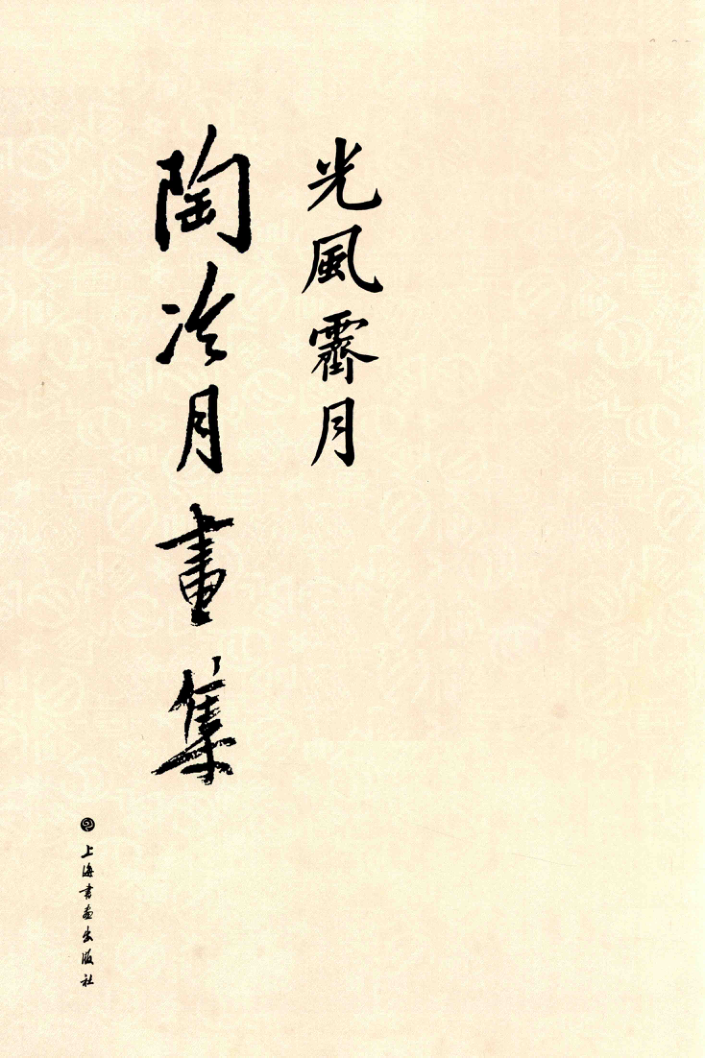 光風霽月
陶冷月畫集
上海书画出版社